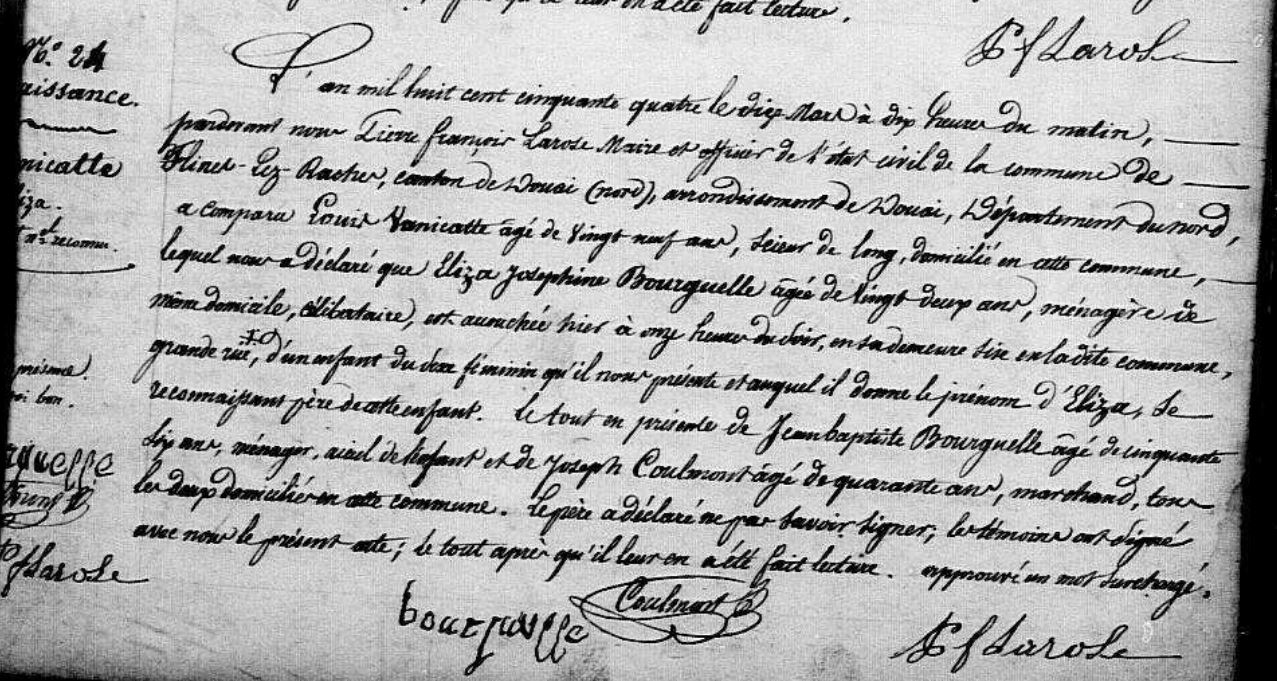 qu'il leur en a été fait lecture.
P f Larose
N.° 24
aissance.
nicatte
liza.
nat. reconnue.
L'an mil huit cent cinquante quatre le dix Mars à dix heures du matin,
pardevant nous Pierre françois Larose Maire et officier de l'état civil de la commune de
Flines-Lez-Raches, canton de Douai (nord), arrondissement de Douai, Département du nord,
a comparu Louis Vanicatte âgé de Vingt neuf ans, Scieur de long, domicilié en cette commune,
lequel nous a déclaré que Eliza Josephine Bourguelle âgée de Vingt deux ans, ménagère de
même domicile, célibataire, est accouchée hier à onze heures du soir, en sa demeure sise en ladite commune,
grande rue, d'un enfant du sexe féminin qu'il nous présente et auquel il donne le prénom d'Eliza, se
reconnaissant père de cette enfant. Le tout en présence de Jean baptiste Bourguelle âgé de cinquante
six ans, ménager, aieul de l'enfant et de Joseph Coulmont âgé de quarante ans, marchand, tous
les deux domiciliés en cette commune. Le père a déclaré ne pas savoir signer; les témoins ont signé
avec nous le présent acte; le tout après qu'il leur en a été fait lecture. approuvé un mot surchargé.
présence
bon.
P f Larose
bourguelle
Coulmont
P f Larose